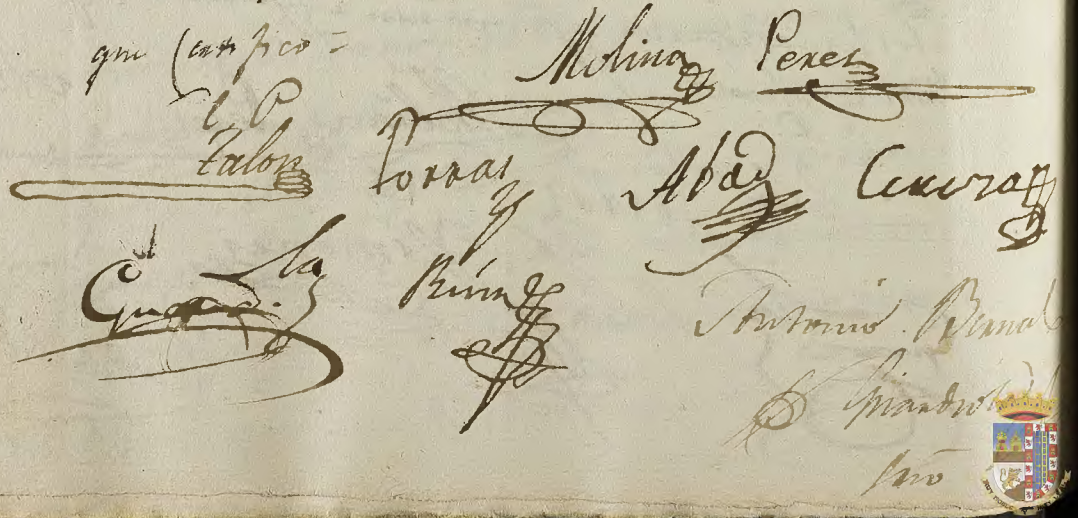 que Certifico =
Molina Perez
E. P.
Talon Porras Abad Cervera
Ruiz
Antonio Bernal
Srio